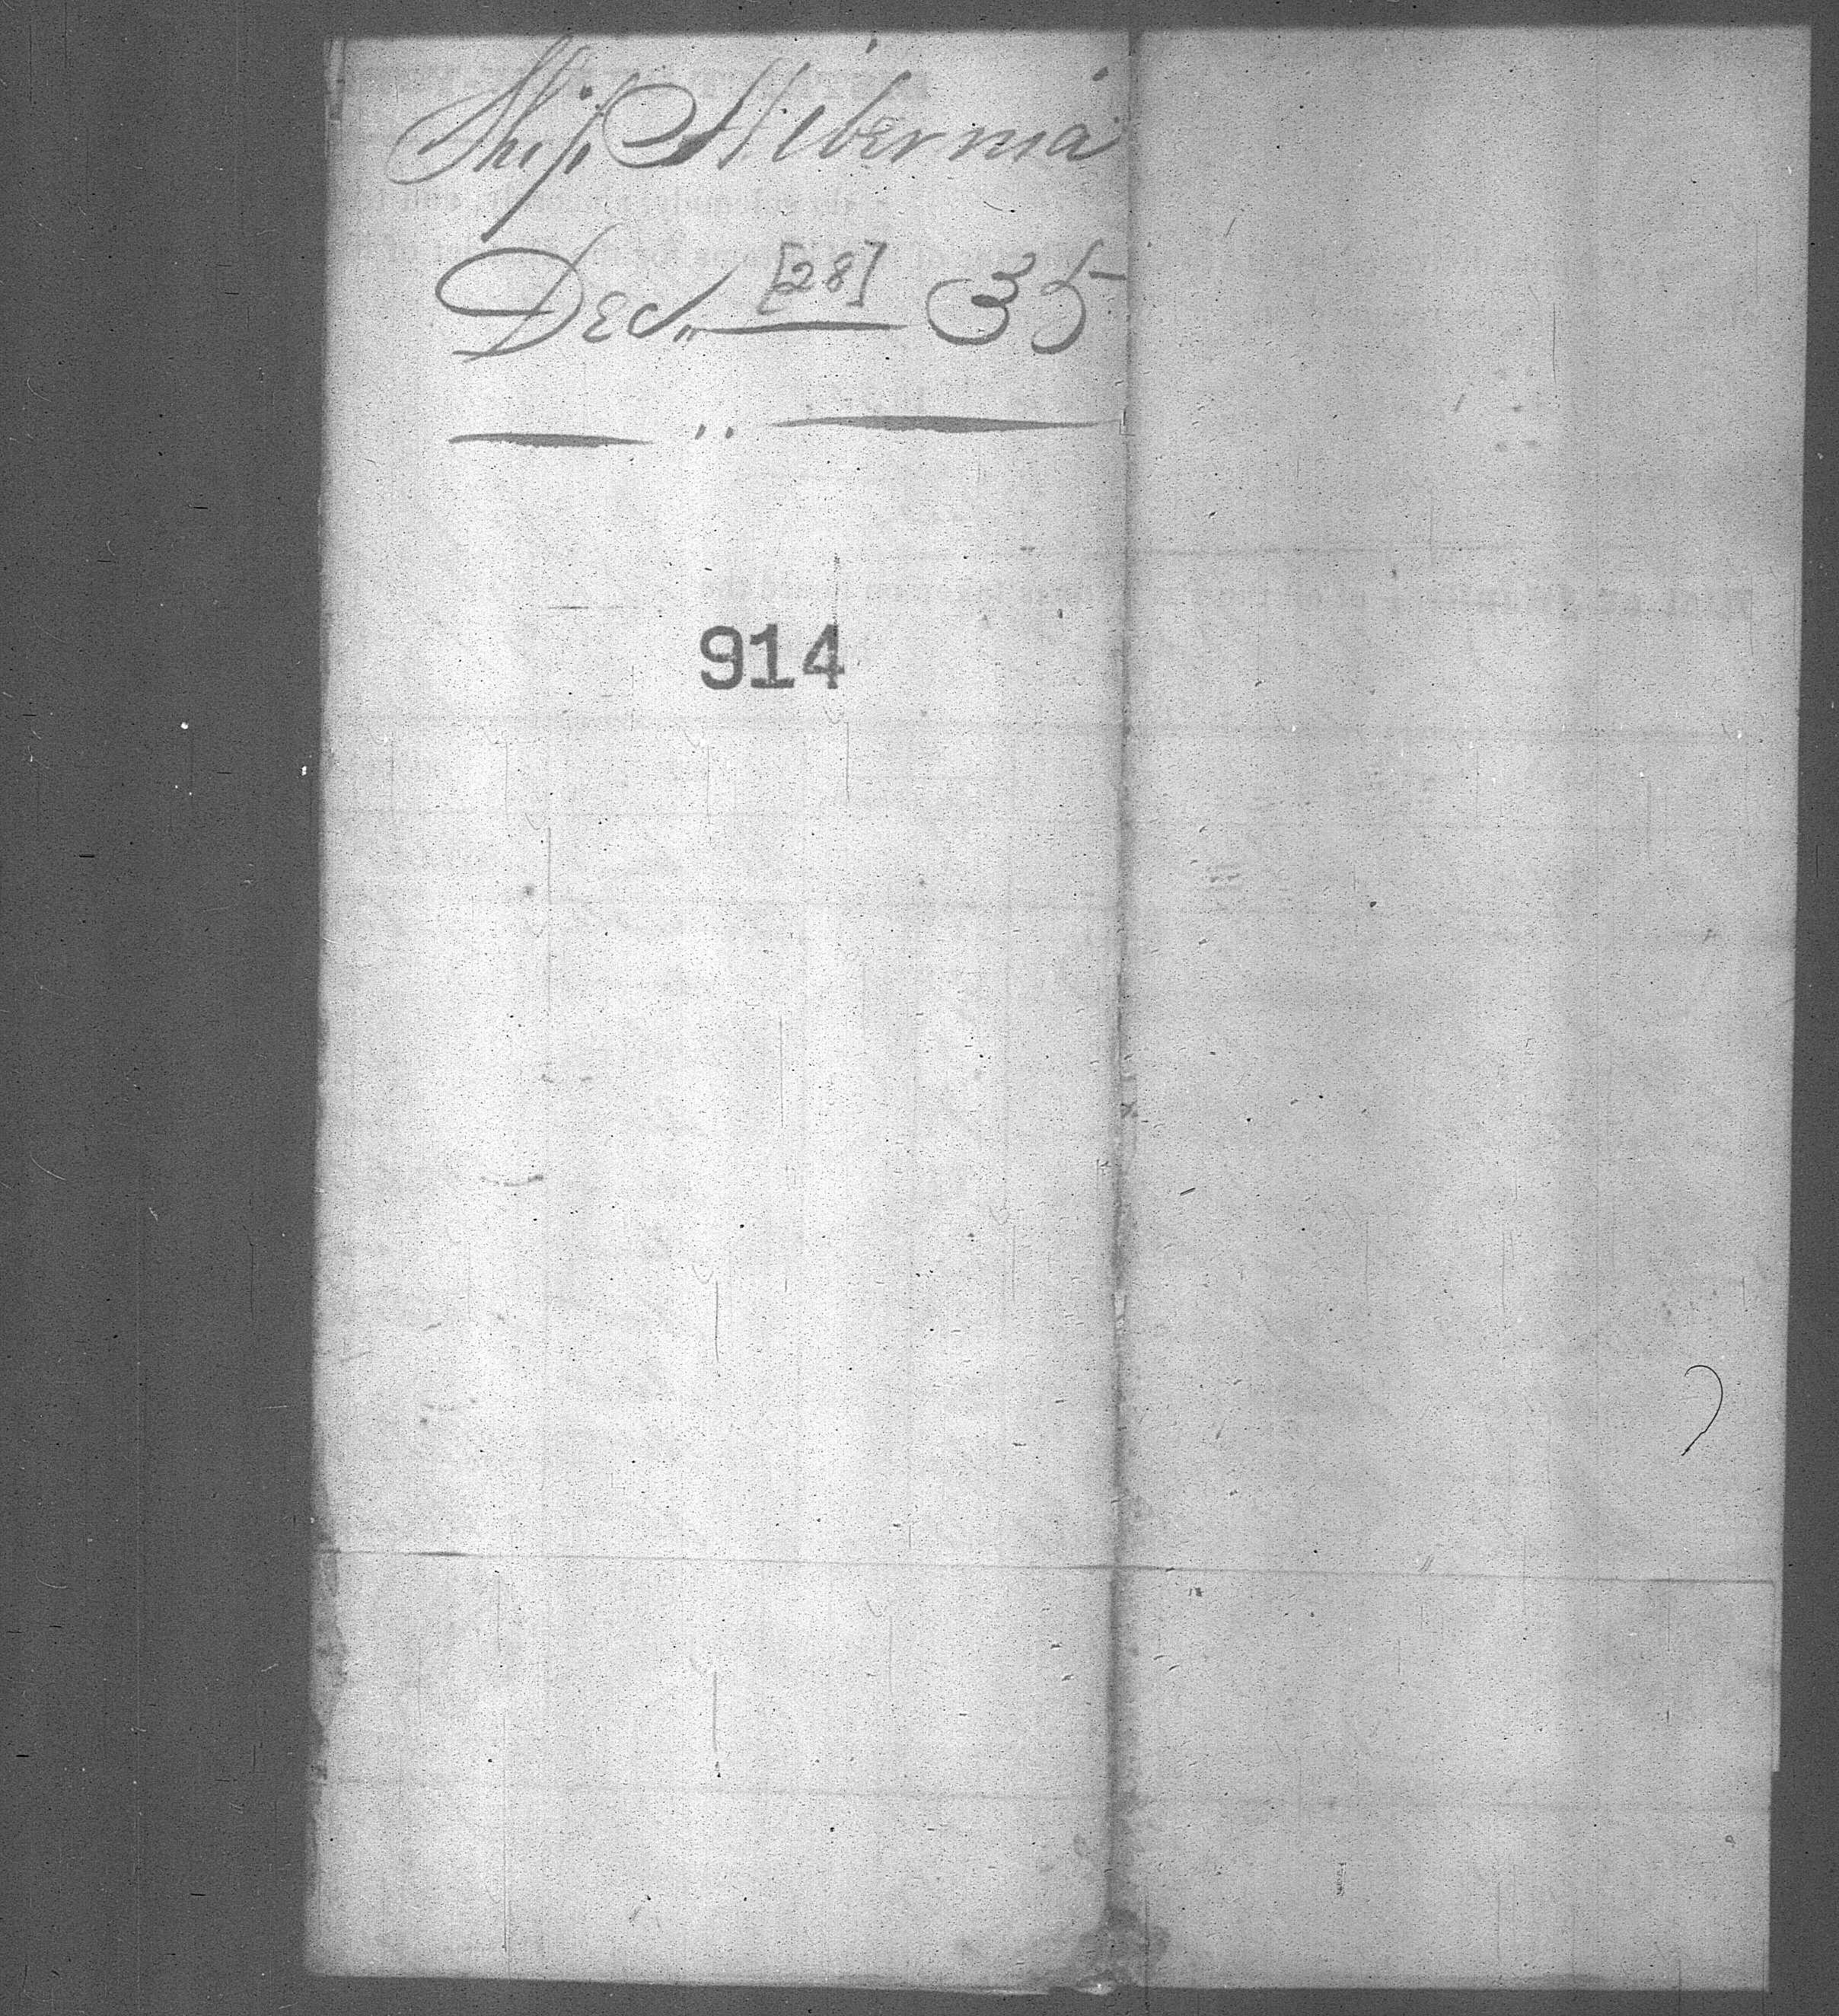 Ship Hibernia
Dec. [28] 35
914